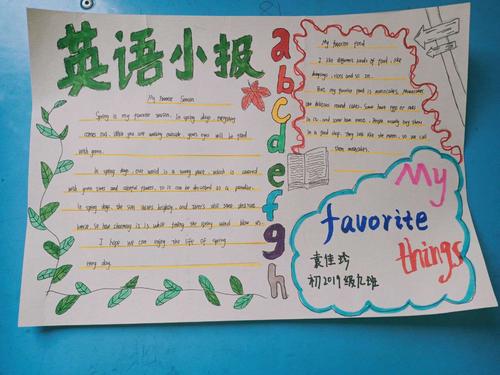 英语小报
a
b
c
d
e
f
g
h
My favorite Season
Spring is my favorite season. In spring days, everything
comes out. When you are walking outside, your eyes will be filled
with green.
In spring days, our world is a pretty place, which is covered
with green trees and colorful flowers, so it can be described as a paradise.
In spring days, the sun shines brightly, and
how charming is is while feeling the spring wind
I hope we can enjoy the life of spring
My favorite food
I like different kinds of food, like
dumplings, rices and so on.
But my favorite food is mooncakes. Mooncakes
are delicious round cakes. Some have eggs or nuts
in it, and some have meat. People usually buy them
in a food shop. They look like the moon, so we call
them mooncakes.
My
favorite
things
袁佳珍
初2019级九班